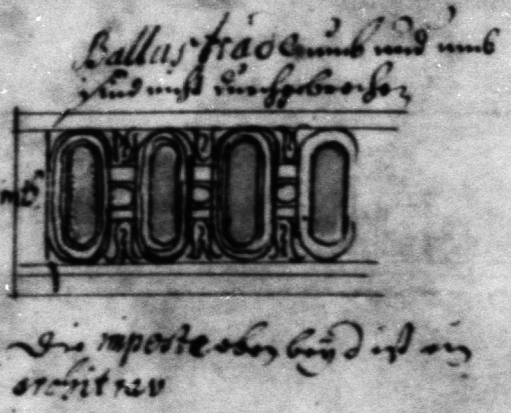 Ballustrade rund und umb
sind nicht durchgebrochen
Die imposte oben beÿ d ist ein
architrav